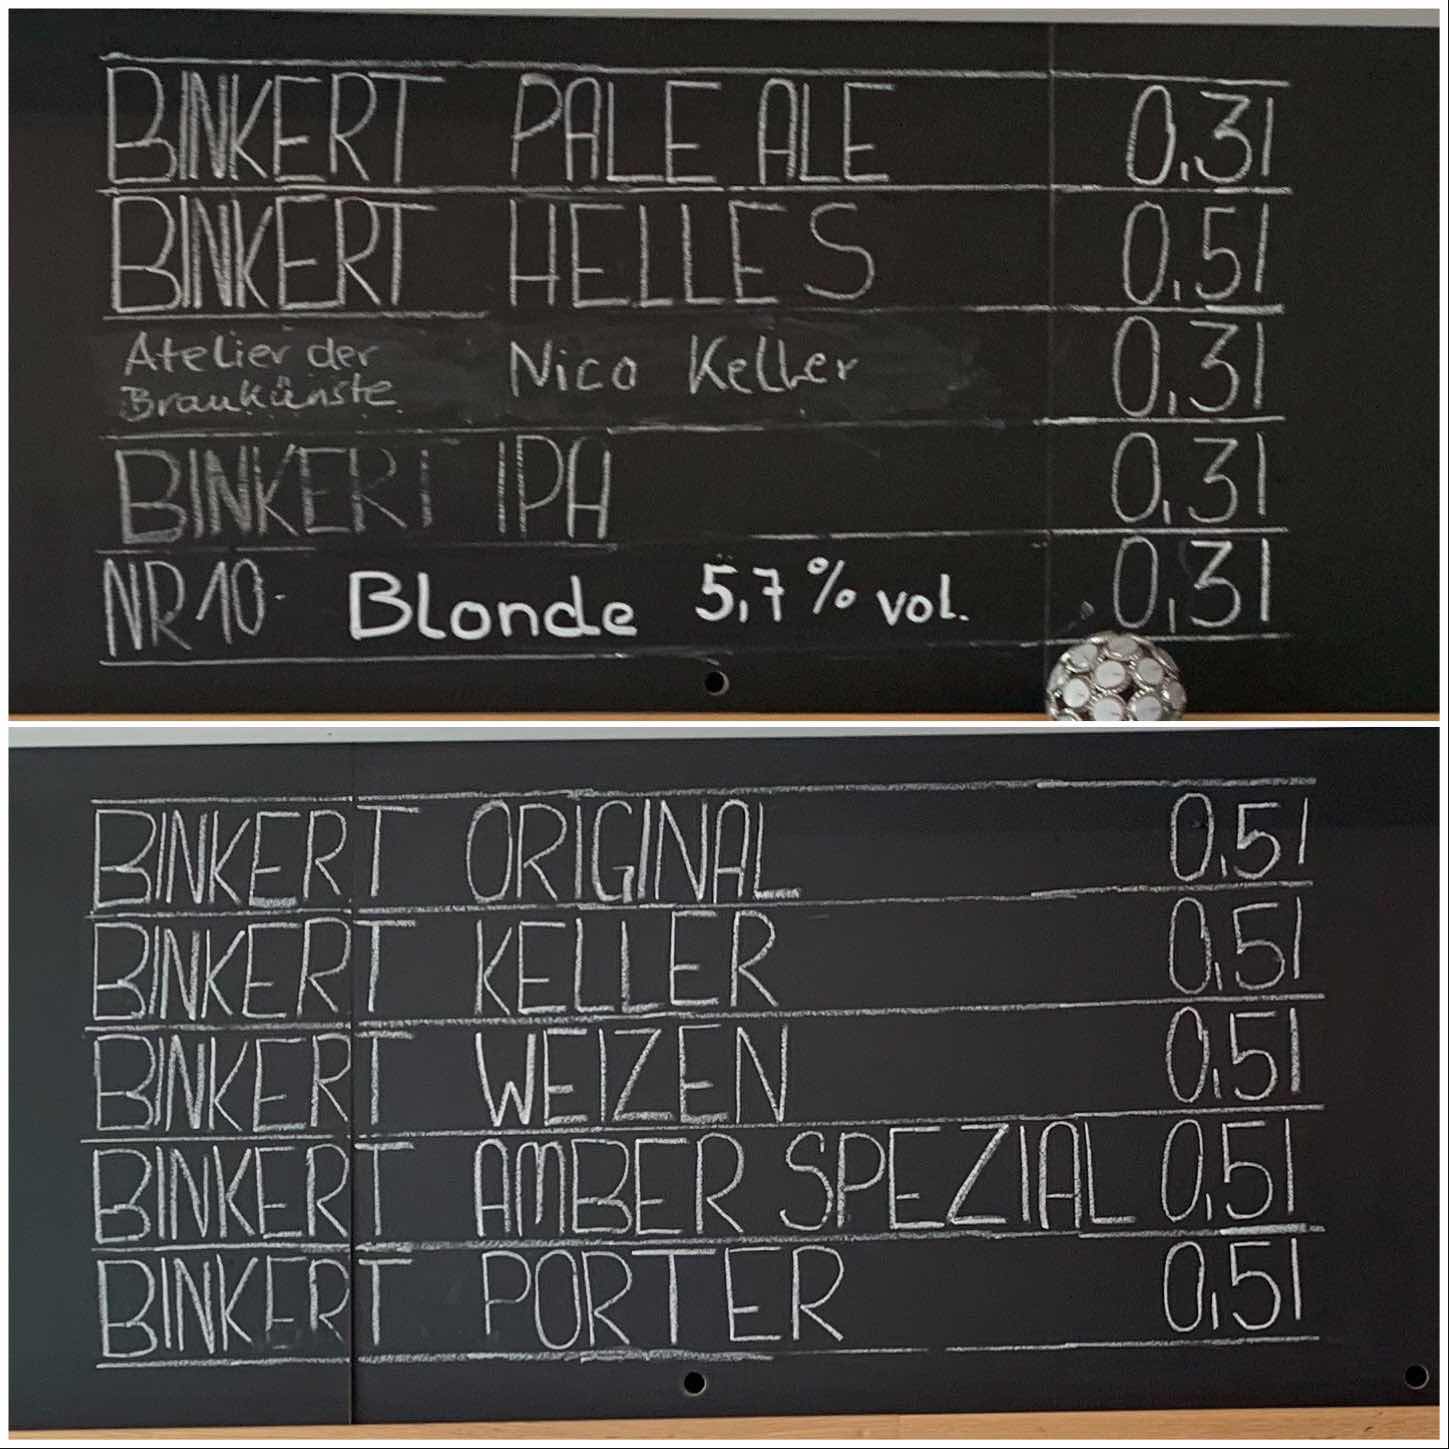 BINKERT PALE ALE 0,3l
BINKERT HELLES 0,5l
Atelier der Braukünste Nico Keller 0,3l
BINKERT IPA 0,3l
NR 10 Blonde 5,7% vol. 0,3l
BINKERT ORIGINAL 0,5l
BINKERT KELLER 0,5l
BINKERT WEIZEN 0,5l
BINKERT AMBER SPEZIAL 0,5l
BINKERT PORTER 0,5l